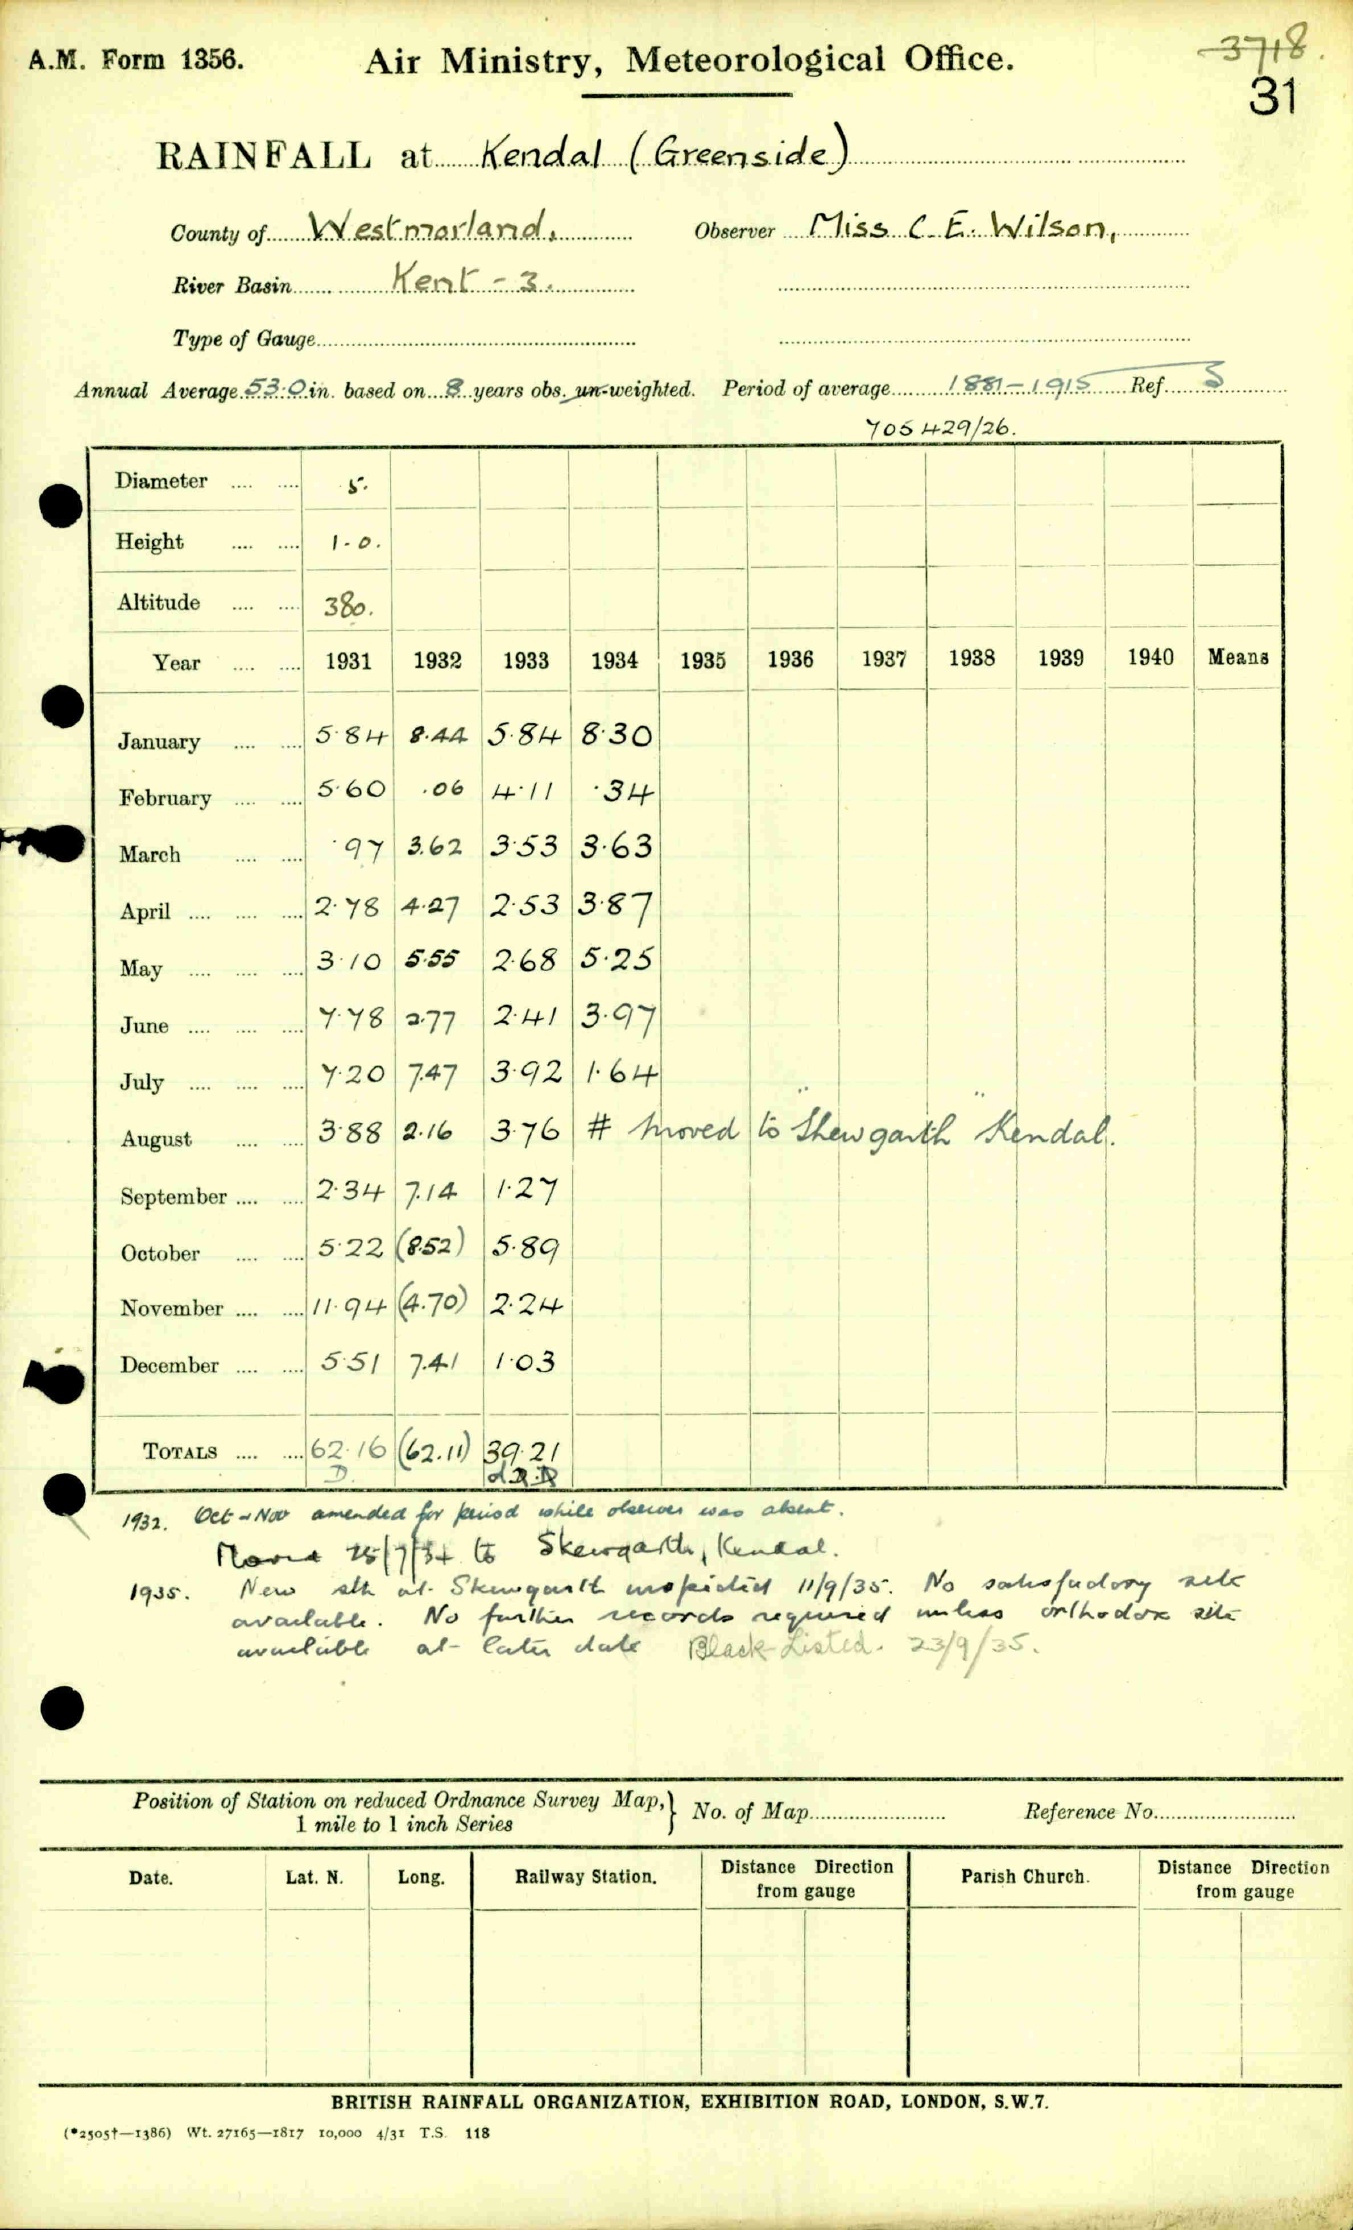 3718.
A.M. Form 1356. Air Ministry, Meteorological Office. 31
RAINFALL at Kendal (Greenside)
County of Westmorland, Observer Miss C. E. Wilson,
River Basin Kent - 3.
Type of Gauge
Annual Average 53.0 in. based on 8 years obs. un-weighted. Period of average 1881-1915 Ref. S
705429/26.
Diameter .... .... 5.
Height .... .... 1.0.
Altitude .... .... 380.
Year .... .... 1931 1932 1933 1934 1935 1936 1937 1938 1939 1940 Means
January .... .... 5.84 8.44 5.84 8.30
February .... .... 5.60 .06 4.11 .34
March .... .... .97 3.62 3.53 3.63
April .... .... .... 2.78 4.27 2.53 3.87
May .... .... .... 3.10 5.55 2.68 5.25
June .... .... .... 7.78 2.77 2.41 3.97
July .... .... .... 7.20 7.47 3.92 1.64
August .... .... 3.88 2.16 3.76 # Moved to "Skewgarth" Kendal.
September .... .... 2.34 7.14 1.27
October .... .... 5.22 (8.52) 5.89
November .... .... 11.94 (4.70) 2.24
December .... .... 5.51 7.41 1.03
TOTALS .... .... 62.16 (62.11) 39.21
D.
1932. Oct & Nov amended for period while observer was absent.
Moved 25/7/34 to Skewgarth, Kendal.
1935. New stn at Skewgarth inspected 11/9/35. No satisfactory site
available. No further records required unless orthodox site
available at later date Black-Listed. 23/9/35.
Position of Station on reduced Ordnance Survey Map,} No. of Map Reference No.
1 mile to 1 inch Series
Date. Lat. N. Long. Railway Station. Distance Direction Parish Church. Distance Direction
from gauge from gauge
BRITISH RAINFALL ORGANIZATION, EXHIBITION ROAD, LONDON, S.W.7.
(*2505†—1386) Wt. 27165—1817 10,000 4/31 T.S. 118